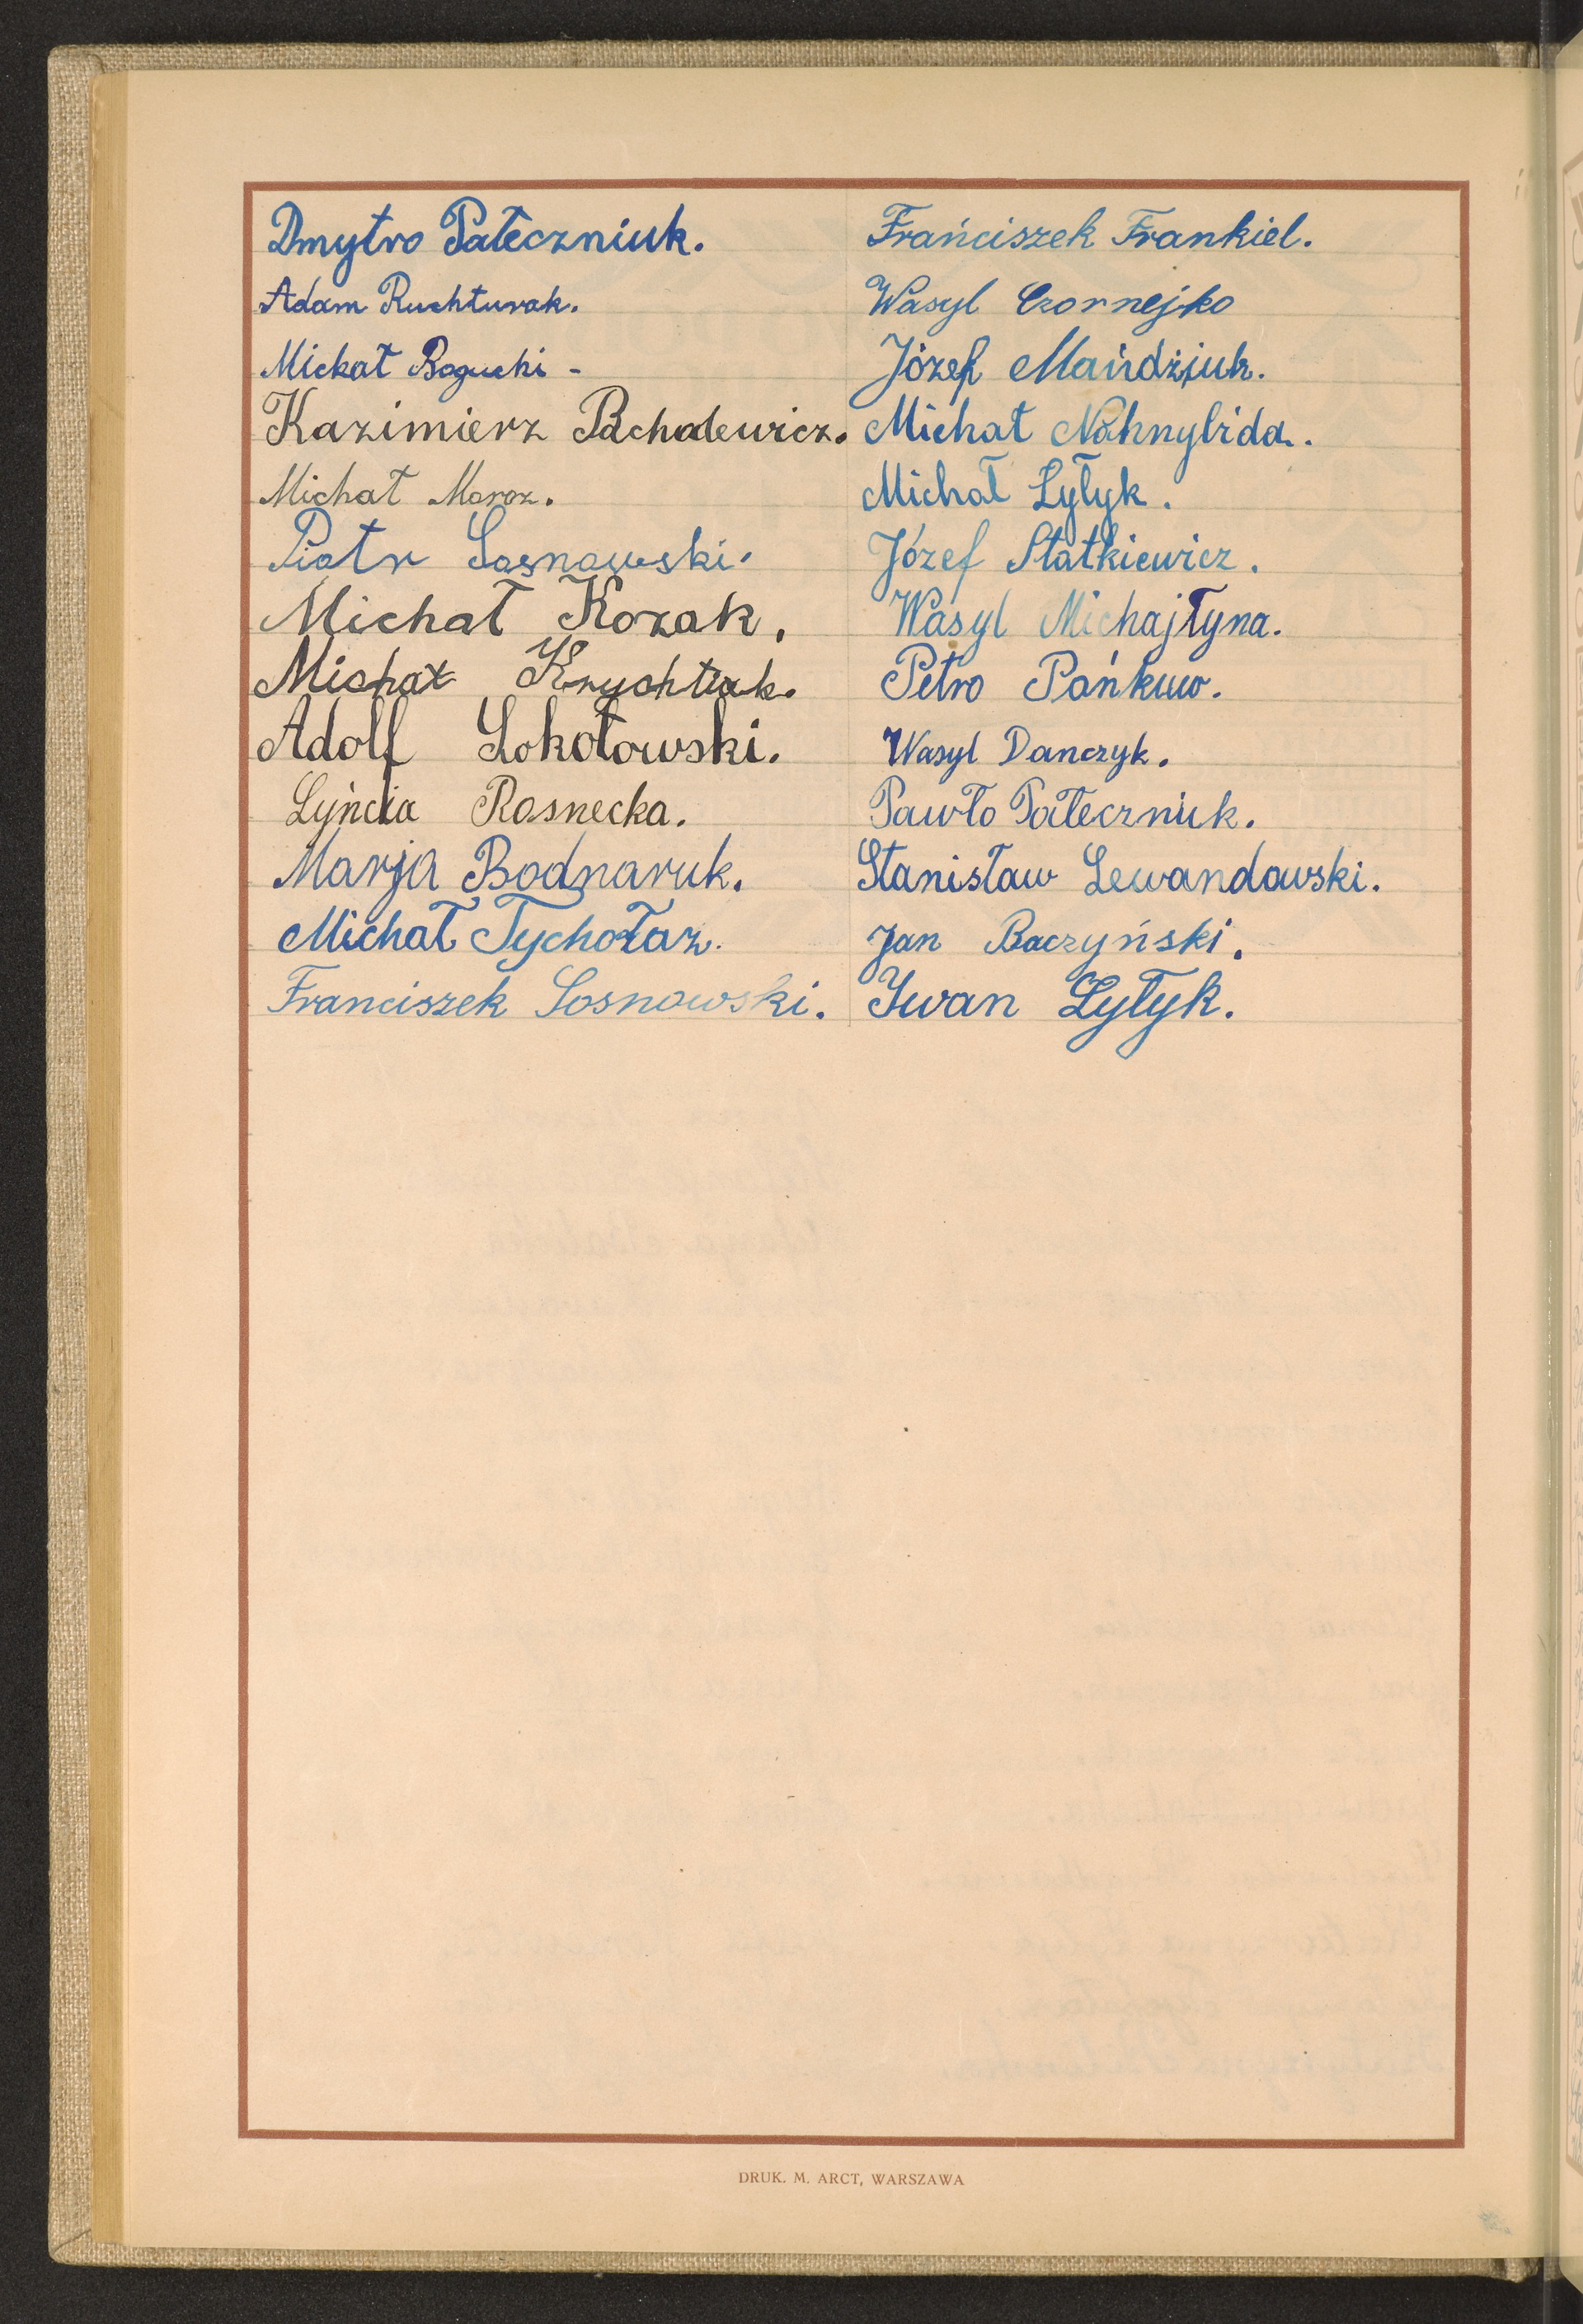 Dmytro Pałeczniuk.
Adam Ruchturak.
Michał Bogucki -
Kazimierz Pacholewicz.
Michał Moroz.
Piotr Sosnowski.
Michał Kozak.
Michał Krychtiak.
Adolf Sokołowski.
Lyńcia Rosnecka.
Marja Bodnaruk.
Michał Tychołaz.
Franciszek Sosnowski.
Frańciszek Frankiel.
Wasyl Czornejko
Józef Mańdziuk.
Michał Nahnybida.
Michał Łyłyk.
Józef Statkiewicz.
Wasyl Michajłyna.
Petro Pańkuw.
Wasyl Danczyk.
Pawło Pałeczniuk.
Stanisław Lewandowski.
Jan Baczyński.
Iwan Łyłyk.
DRUK. M. ARCT, WARSZAWA